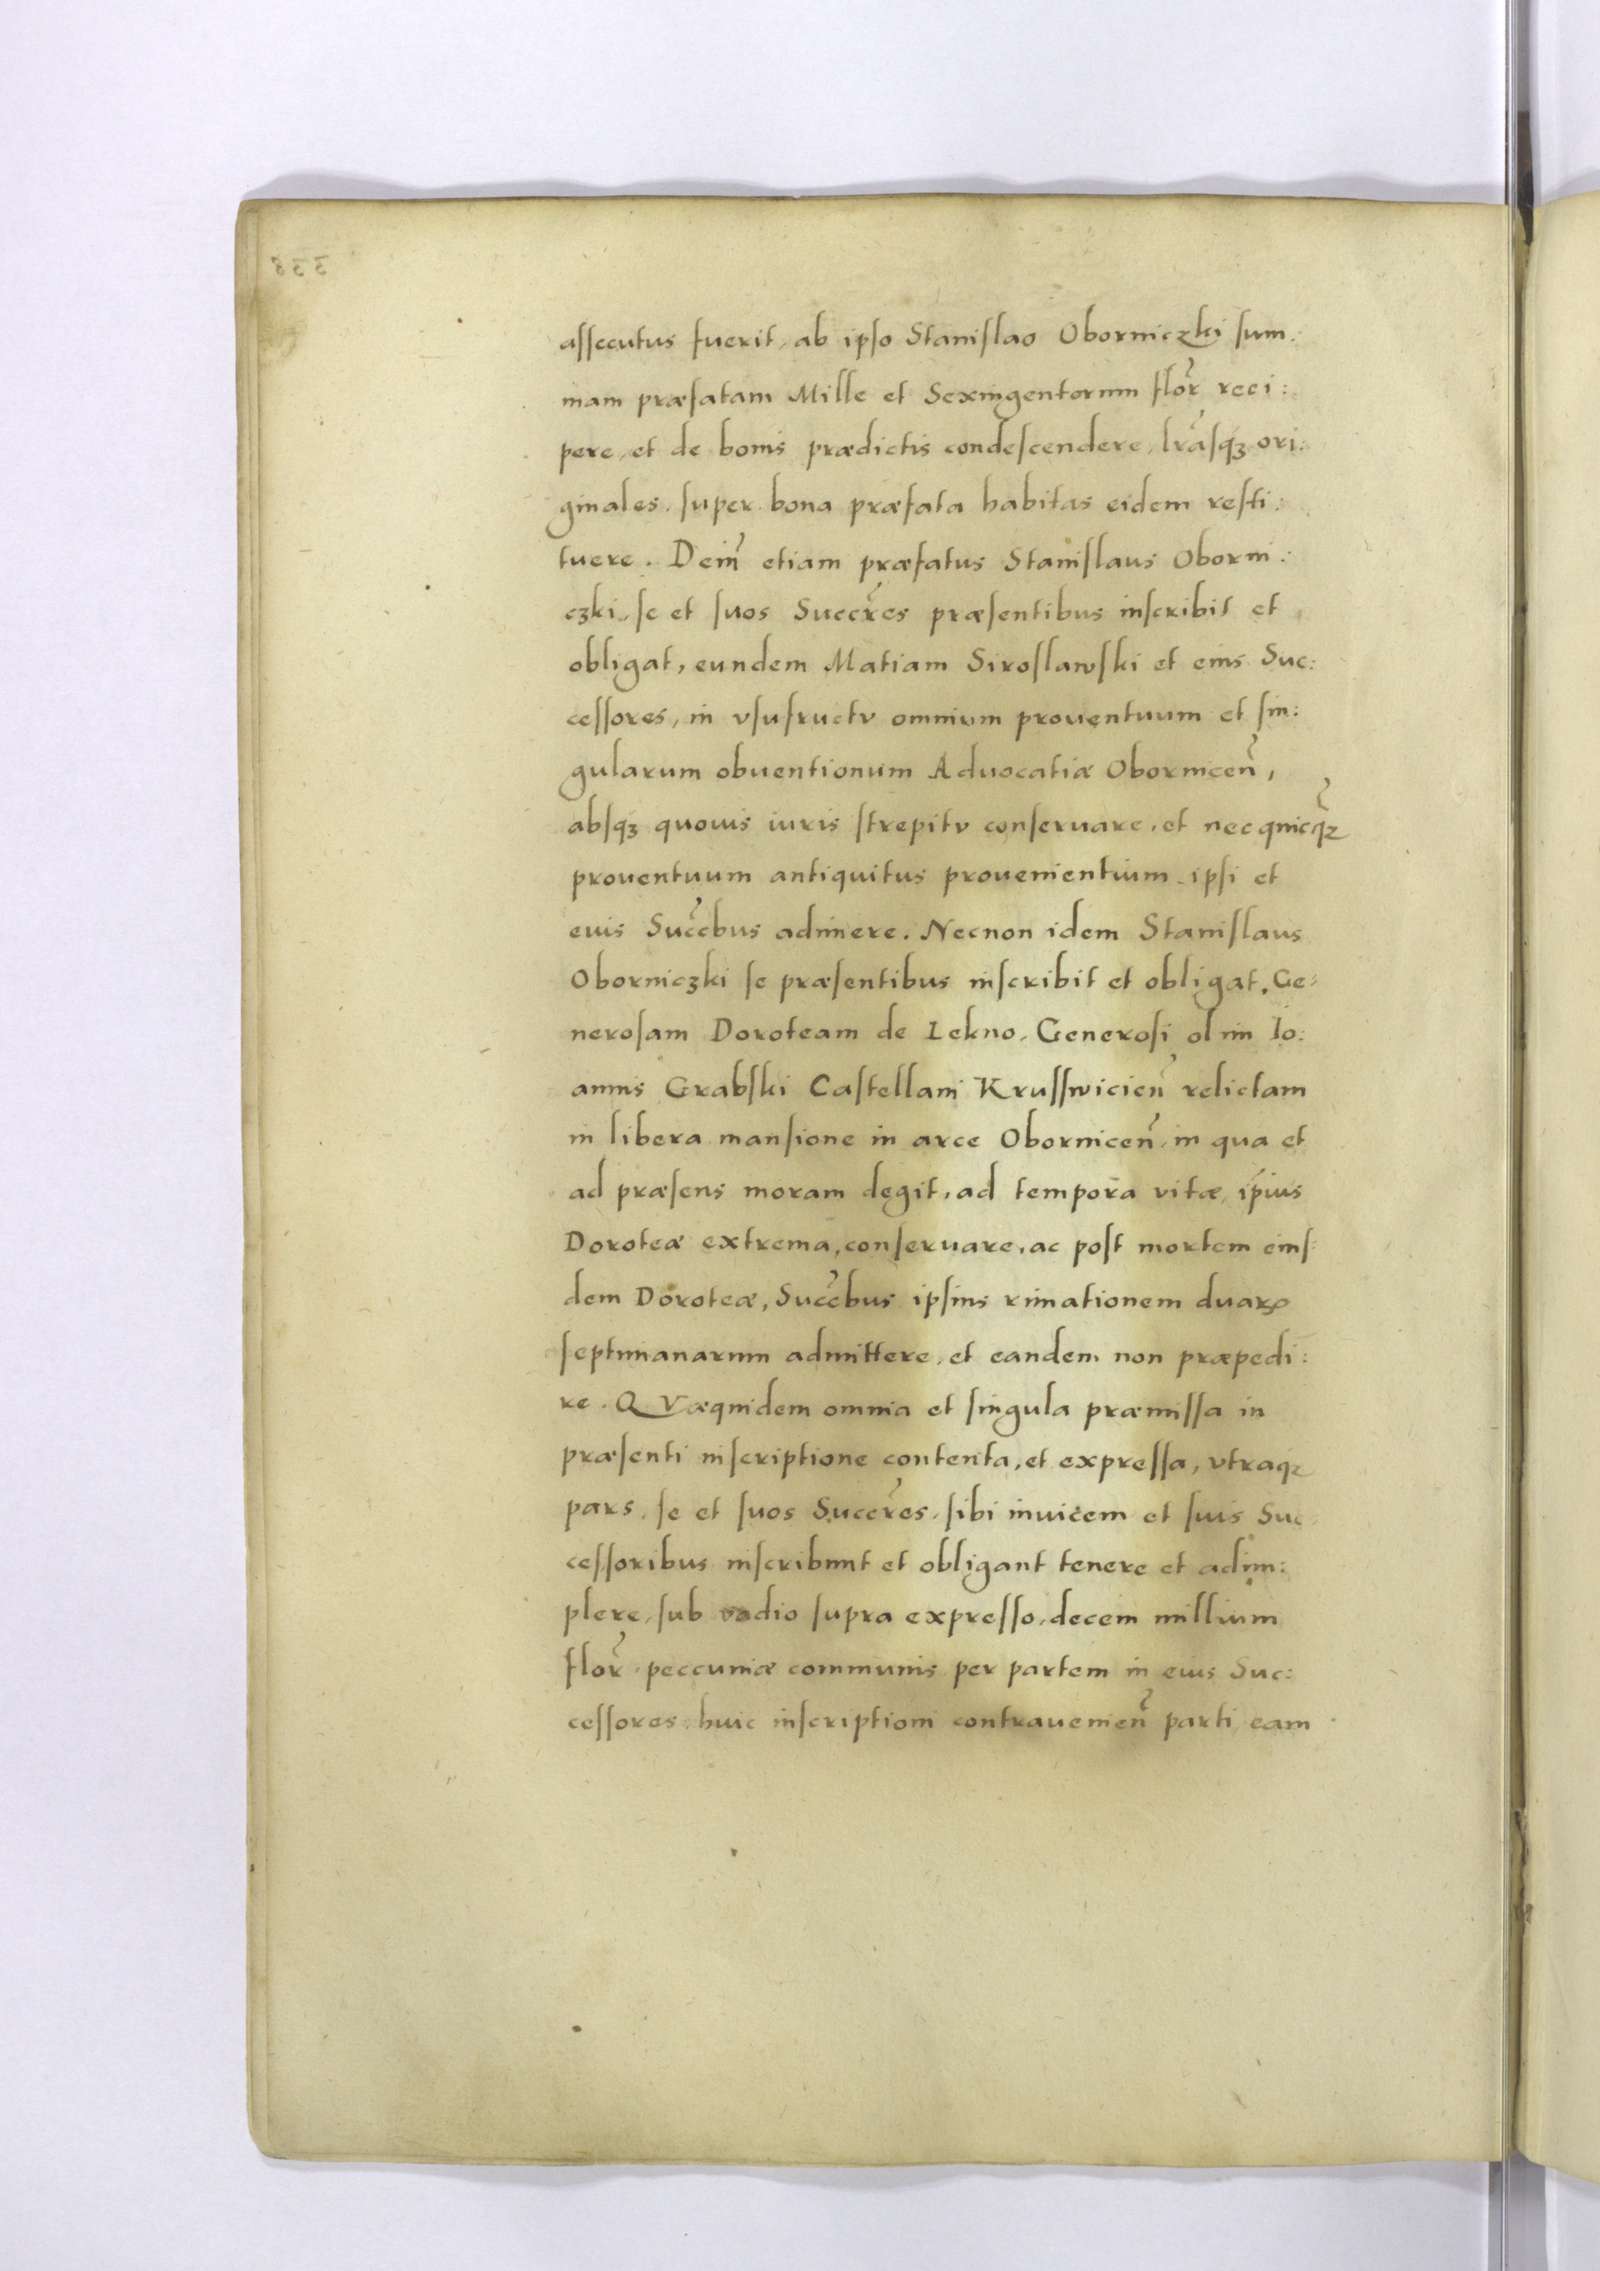 aſſecutus fuerit, ab ipſo Staniſlao Oborniczki ſum:
mam præfatam Mille et Sexingentorum flor̃ reci:
pere, et de bonis prædictis condeſcendere, lr̃aſqꝫ ori:
ginales, ſuper bona præfata habitas eidem reſti:
tuere. Dein̄ etiam præfatus Staniſlaus Oborni:
czki, ſe et ſuos Succr̃es præſentibus inſcribit et
obligat, eundem Matiam Siroſlawſki et eius Suc:
ceſſores, in vſufructv omnium prouentuum et ſin:
gularum obuentionum Advocatiæ Obornicen̄,
abſqꝫ quouis iuris ſtrepitv conſeruare, et nec quicqꝫ̃
prouentuum antiquitus prouenientium ipſi et
euis Succ̃bus adimere. Necnon idem Staniſlaus
Oborniczki ſe præſentibus inſcribit et obligat, Ge:
neroſam Doroteam de Lekno, Generoſi olim Io:
annis Grabſki Caſtellani Kruſſwicien̄ relictam
in libera manſione in arce Obornicen̄, in qua et
ad præſens moram degit, ad tempora vitæ ip̄ius
Doroteæ extrema, conſeruare, ac poſt mortem eiuſ:
dem Doroteæ, Succ̃bus ipſius rimationem duarꝝ
ſeptimanarum admittere, et eandem non præpedi:
re. QVæquidem omnia et ſingula præmiſſa in
præſenti inſcriptione contenta, et expreſſa, vtraqꝫ
pars, ſe et ſuos Succr̃es, ſibi inuicem et ſuis Suc
ceſſoribus inſcribunt et obligant tenere et adim:
plere, ſub vadio ſupra expreſſo, decem millium
flor̃ peccuniæ communis per partem in eius Suc:
ceſſores huic inſcriptioni contrauenien̄ parti eam
338